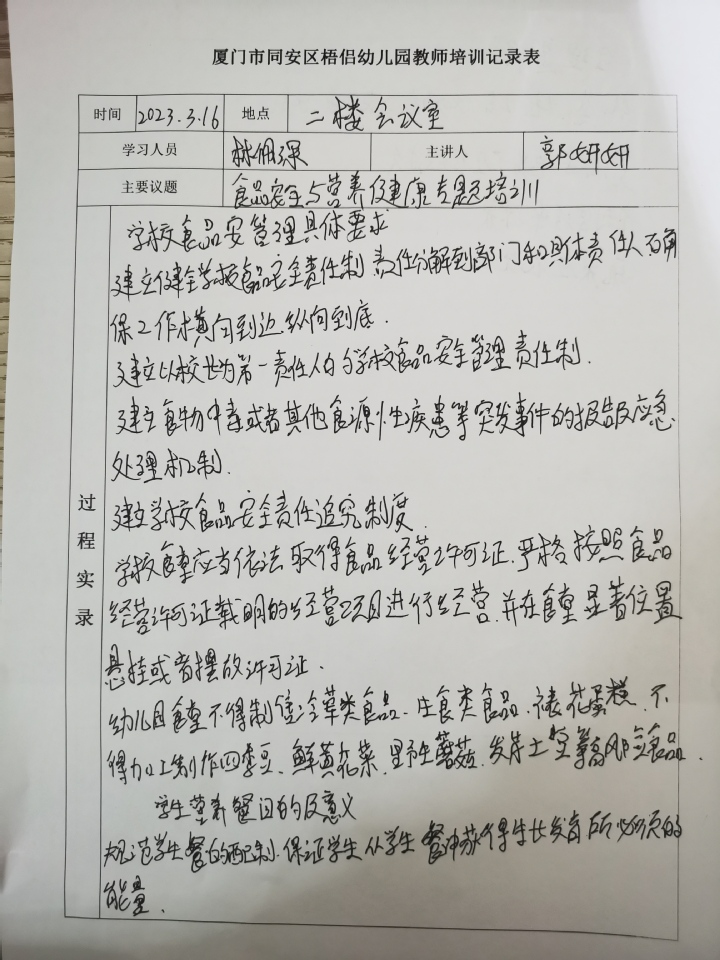 厦门市同安区梧侣幼儿园教师培训记录表
时间 2023.3.16 地点 二楼会议室
学习人员 林佩琛 主讲人 郭妍妍
主要议题 食品安全与营养健康专题培训
过程实录
学校食品安管理具体要求
建立健全学校食品安全责任制 责任分解到部门和具体责任人 确
保工作横向到边.纵向到底.
建立以校长为第一责任人的学校食品安全管理责任制.
建立食物中毒或者其他食源性疾患等突发事件的报告及应急
处理机制.
建立学校食品安全责任追究制度.
学校食堂应当依法取得食品经营许可证.严格按照食品
经营许可证载明的经营项目进行经营.并在食堂显著位置
悬挂或者摆放许可证.
幼儿园食堂不得制售冷荤类食品、生食类食品、裱花蛋糕、不
得加工制作四季豆、鲜黄花菜、野生蘑菇、发芽土豆等高风险食品.
学生营养餐目的及意义
规范学生餐的配制.保证学生从学生餐中获得生长发育所必须的
能量.